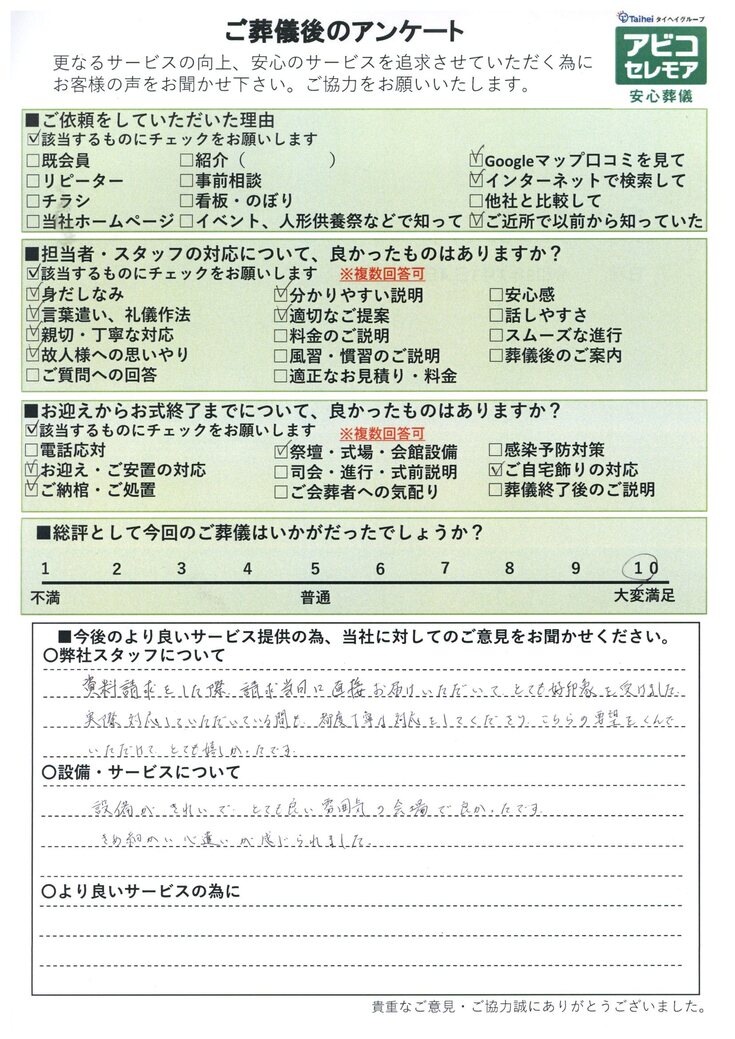 ご葬儀後のアンケート
Taihei タイヘイグループ
アビコ
セレモア
安心葬儀
更なるサービスの向上、安心のサービスを追求させていただく為に
お客様の声をお聞かせ下さい。ご協力をお願いいたします。
■ご依頼をしていただいた理由
☑該当するものにチェックをお願いします
□既会員 □紹介（ ） ☑Googleマップ口コミを見て
□リピーター □事前相談 ☑インターネットで検索して
□チラシ □看板・のぼり □他社と比較して
□当社ホームページ □イベント、人形供養祭などで知って ☑ご近所で以前から知っていた
■担当者・スタッフの対応について、良かったものはありますか？
☑該当するものにチェックをお願いします ※複数回答可
☑身だしなみ ☑分かりやすい説明 □安心感
☑言葉遣い、礼儀作法 ☑適切なご提案 □話しやすさ
☑親切・丁寧な対応 □料金のご説明 □スムーズな進行
☑故人様への思いやり □風習・慣習のご説明 □葬儀後のご案内
□ご質問への回答 □適正なお見積り・料金
■お迎えからお式終了までについて、良かったものはありますか？
☑該当するものにチェックをお願いします ※複数回答可
□電話応対 ☑祭壇・式場・会館設備 □感染予防対策
☑お迎え・ご安置の対応 □司会・進行・式前説明 ☑ご自宅飾りの対応
☑ご納棺・ご処置 □ご会葬者への気配り □葬儀終了後のご説明
■総評として今回のご葬儀はいかがだったでしょうか？
1 2 3 4 5 6 7 8 9 10
不満 普通 大変満足
■今後のより良いサービス提供の為、当社に対してのご意見をお聞かせください。
〇弊社スタッフについて
資料請求をした際、請求当日に直接お届けいただいて、とても好印象を受けました
実際対応していただいている間も、都度丁寧な対応をしてくださり、こちらの要望をくんで
いただけて、とても嬉しかったです。
〇設備・サービスについて
設備がきれいで、とても良い雰囲気の会場で良かったです。
きめ細かい心遣いが感じられました。
〇より良いサービスの為に
貴重なご意見・ご協力誠にありがとうございました。